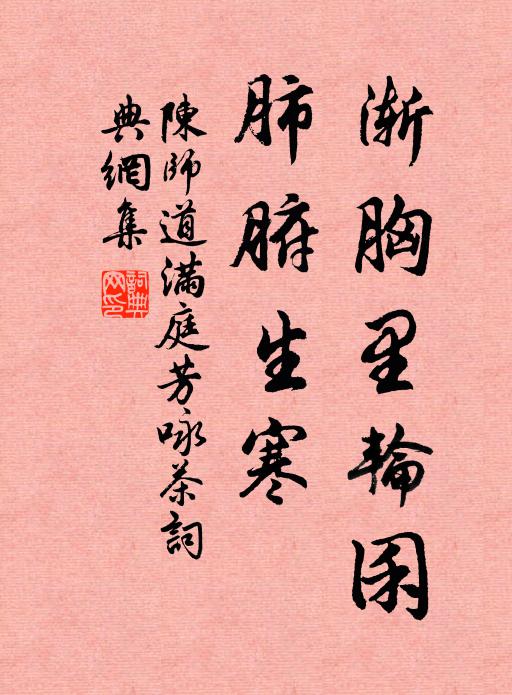 漸胸里輪囷
肺腑生寒
陳師道滿庭芳咏茶詞
典網集
詞典網印